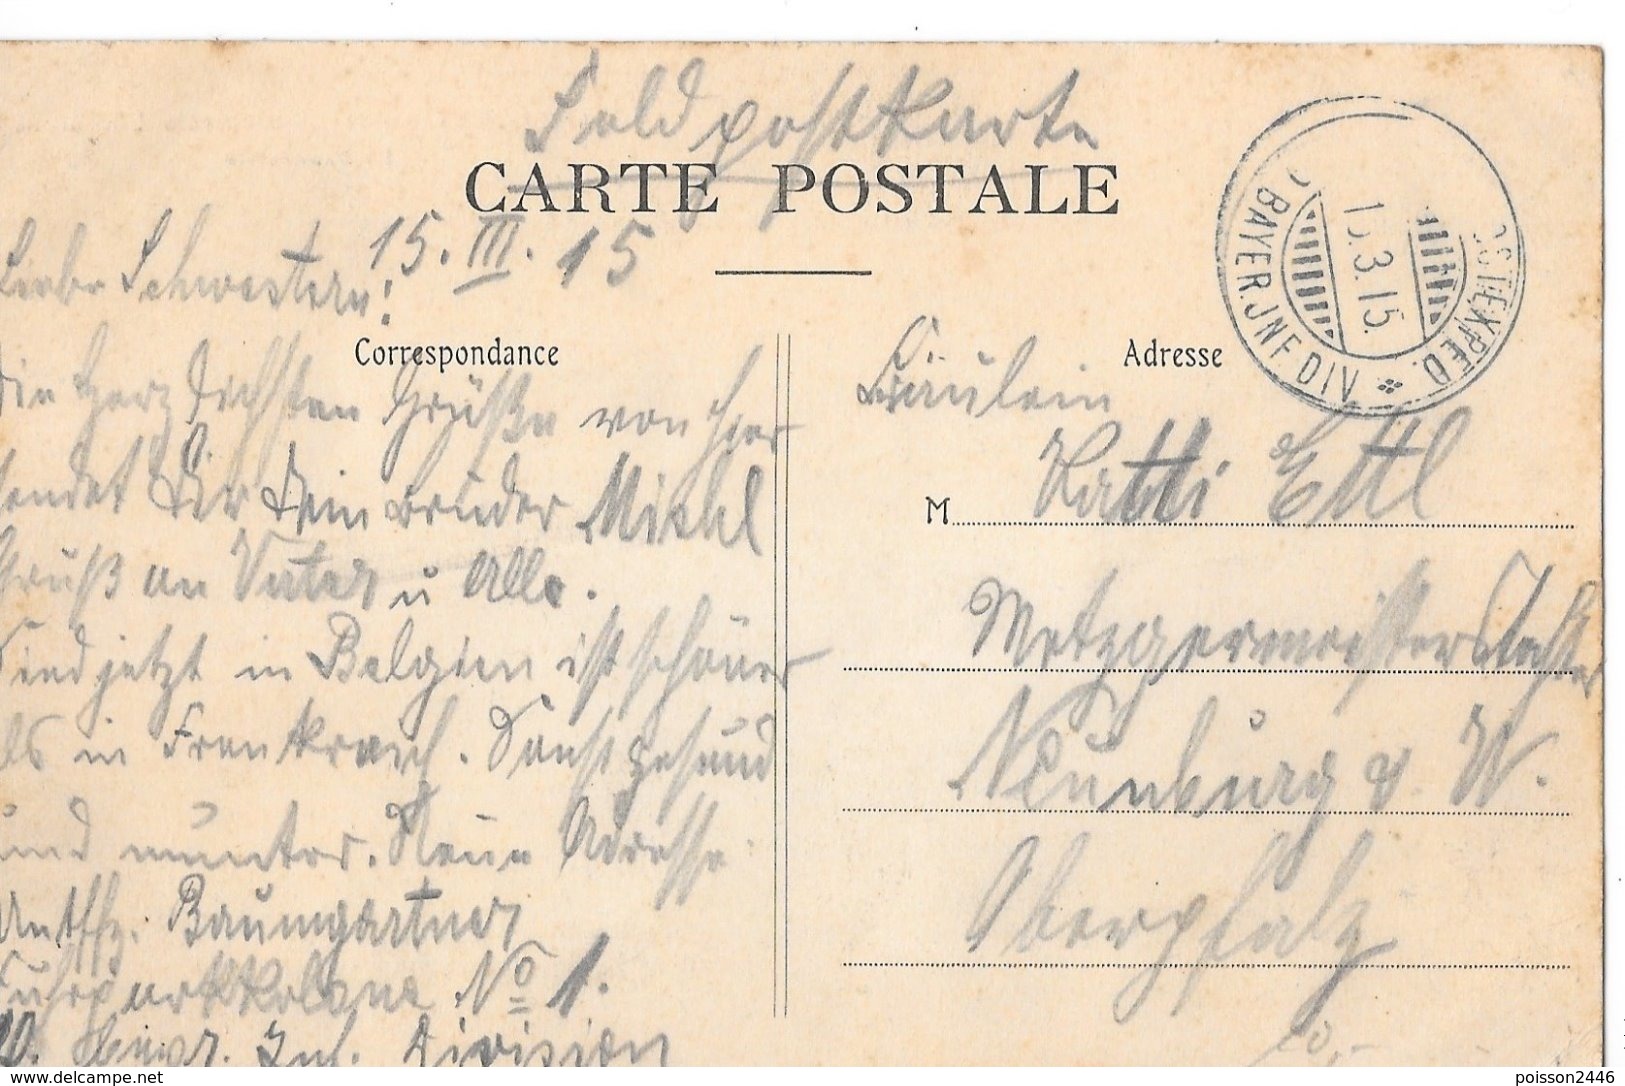 Feldpostkarte
CARTE POSTALE
15. III. 15
Liebe Schwestern!
Correspondance
Die herzlichsten Grüße von hier
sendet Dir Dein Bruder Michl
Gruß an Vater u Alle.
Sind jetzt in Belgien ist schöner
als in Frankreich. Sonst gesund
und munter. Neue Adresse
Untffz. Baumgartner
Fuhrparkkolone No 1.
bayr. Inf. Division
Adresse
Fräulein
M Katti Ettl
Metzgermeisters
Neunburg v. W.
Oberpfalz
POSTEXPED.
BAYER. INF DIV
15.3.15.
poisson2446